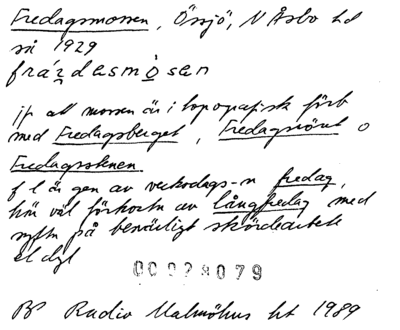 Fredagsmossen, Össjö, N Åsbo hd
så 1929
fráz̥dasmò̥sən
if att mossen är i topografisk förb
med Fredagsberget, Fredagsrönet o
Fredagsstenen
f l är gen av veckodags-n fredag,
här väl förkortn av långfredag med
syftn på besvärligt skördearbete
el dyl
00028079
BP Radio Malmöhus ht 1989